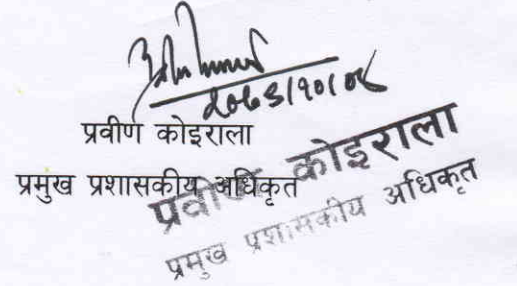 प्रवीण कोइराला
प्रमुख प्रशासकीय अधिकृत
प्रवीण कोइराला
प्रमुख प्रशासकीय अधिकृत